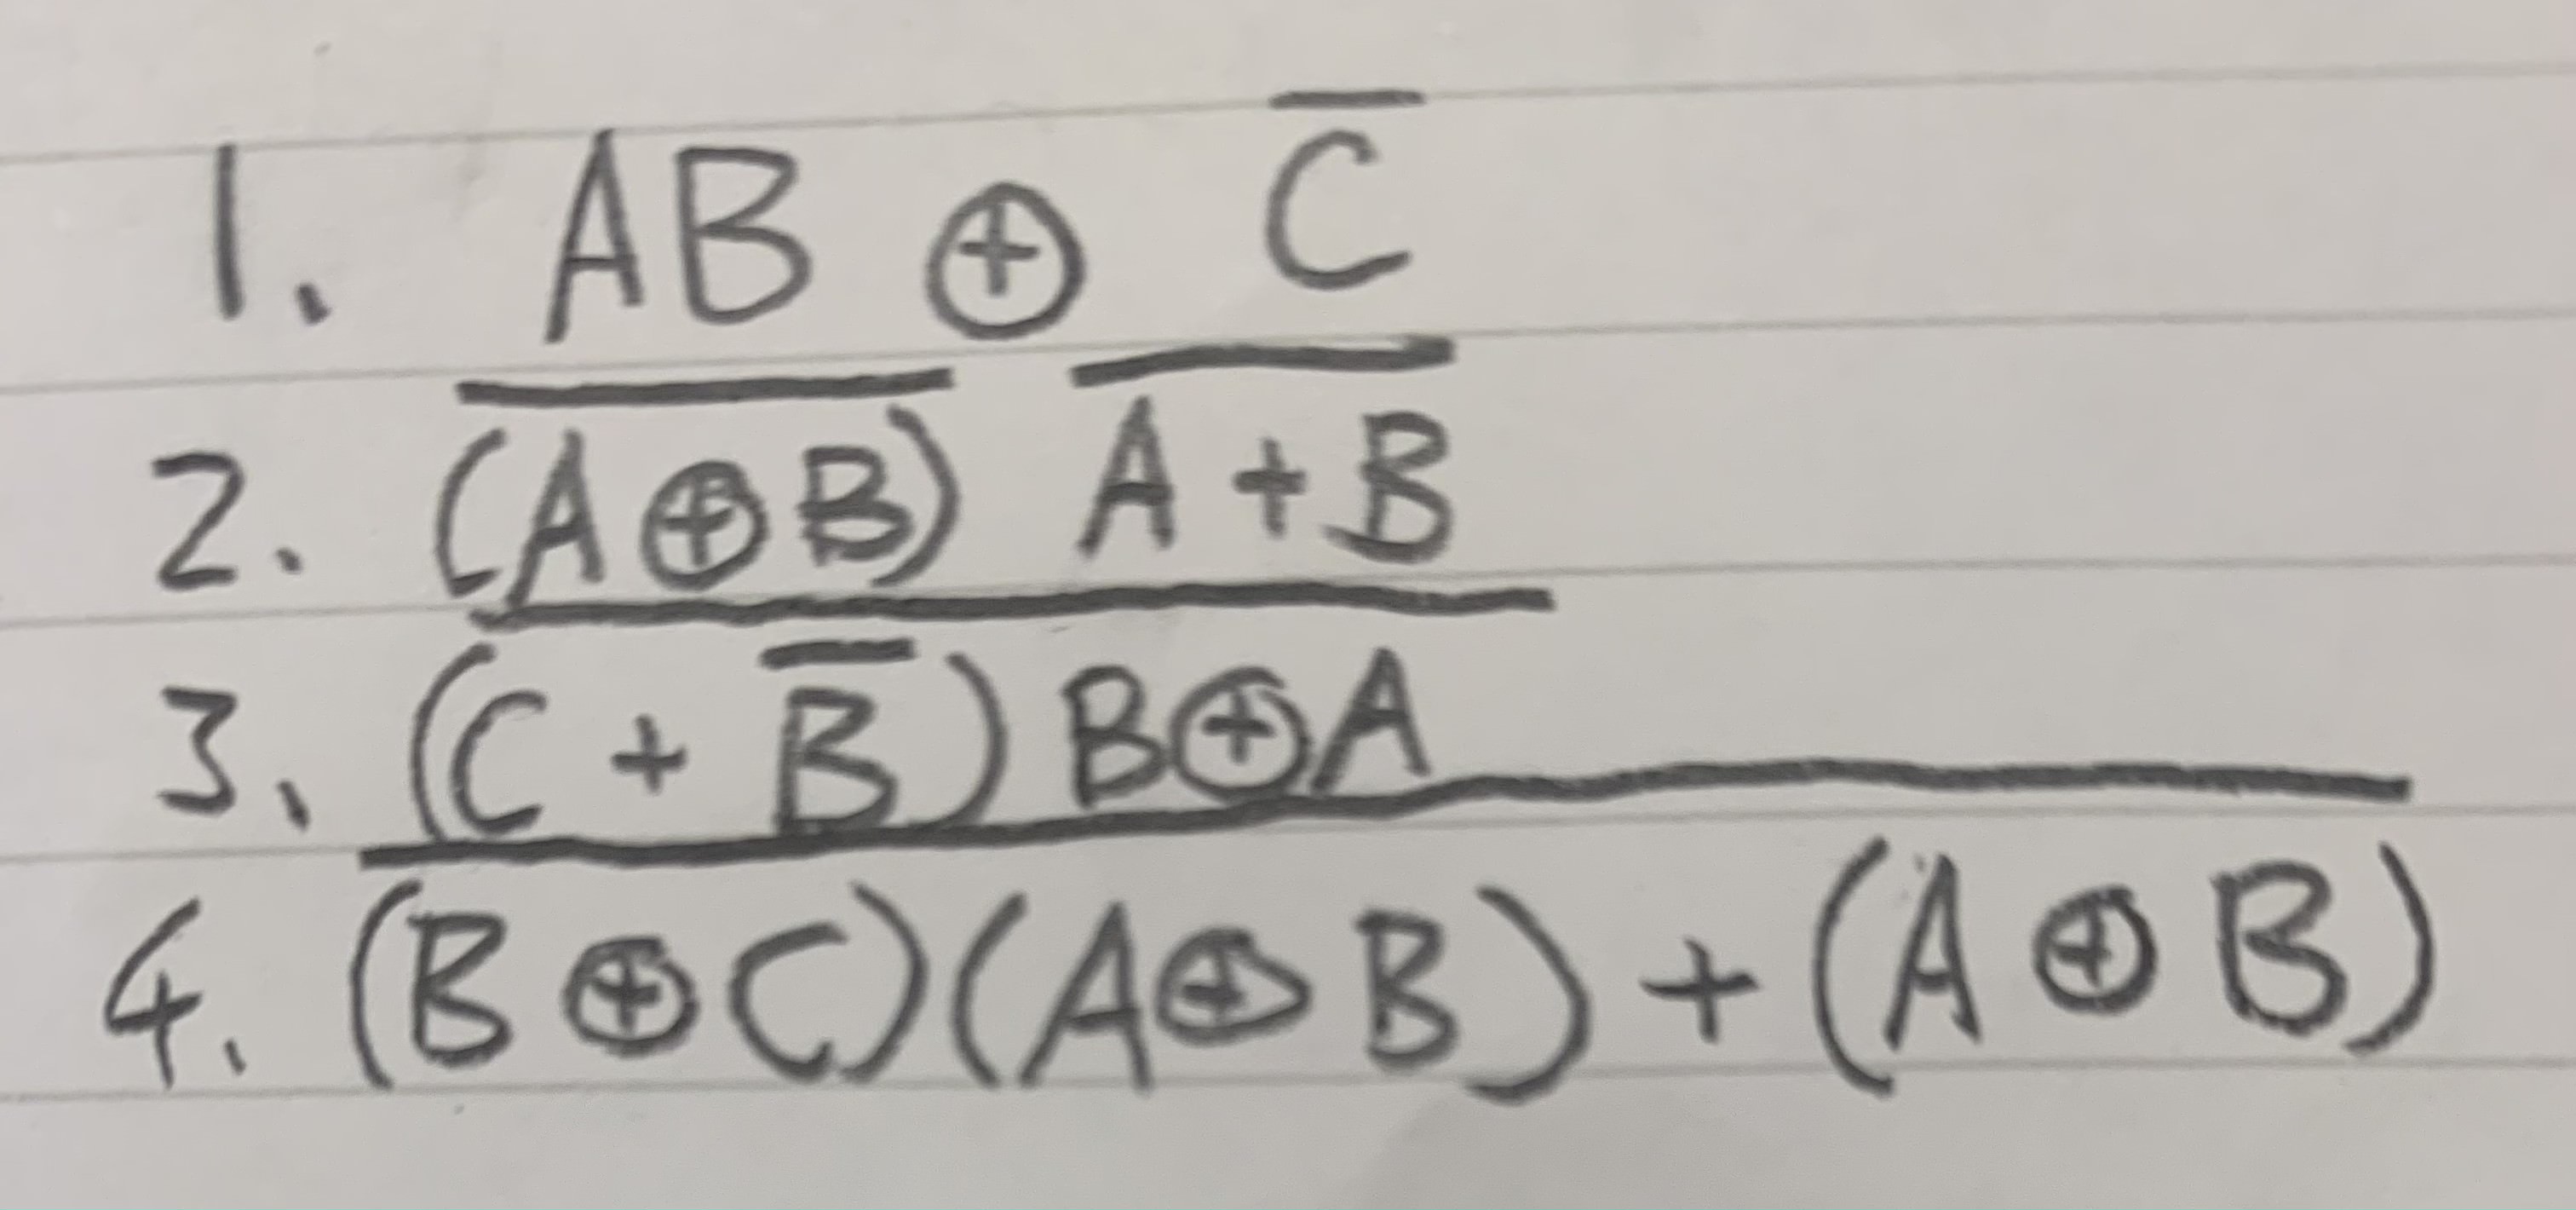 1. AB ⊕ C̅
2. \overline{(A ⊕ B)} \overline{A + B}
3. \overline{(C + \overline{B}) B ⊕ A}
4. \overline{(B ⊕ C)(A ⊕ B) + (A ⊕ B)}